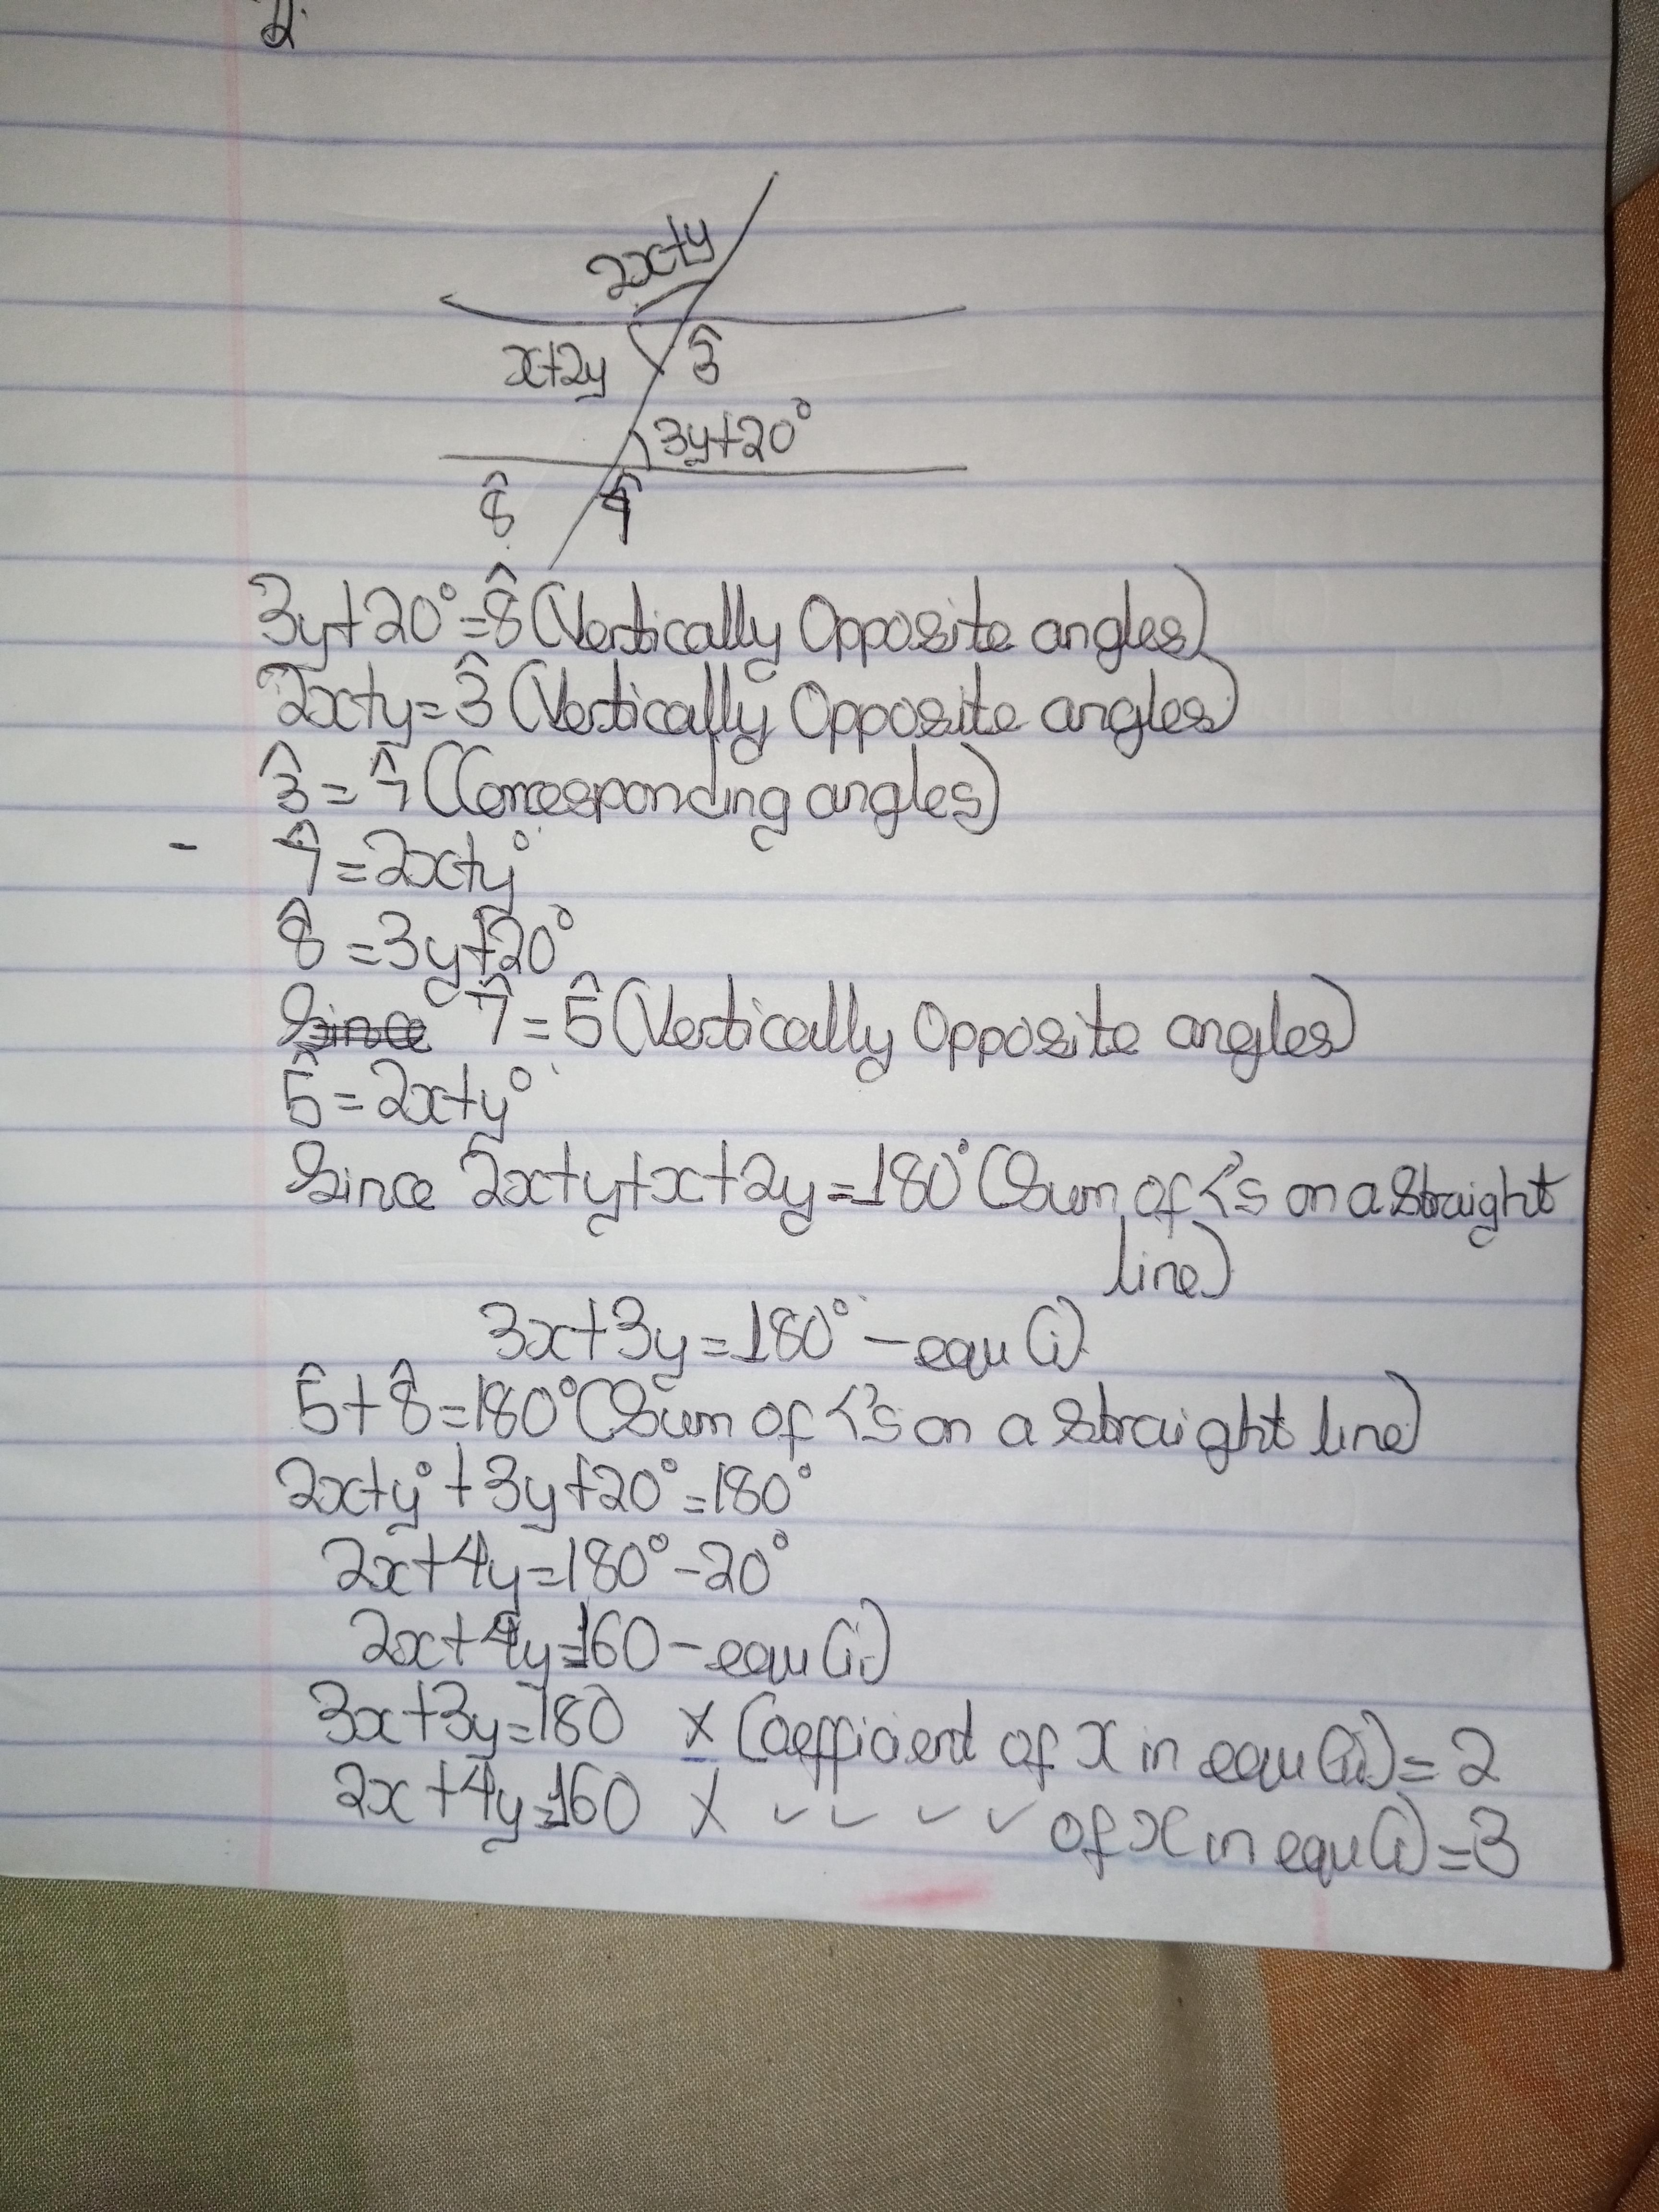 2.
2x+y
x+2y 3̂
3y+20°
8̂ 7̂
3y+20°=8̂ (Vertically Opposite angles)
2x+y=3̂ (Vertically Opposite angles)
3̂ = 7̂ (Corresponding angles)
- 7̂ =2x+y°
8̂ =3y+20°
Since 7̂ = 5̂ (Vertically Opposite angles)
5̂ = 2x+y°
Since 2x+y+x+2y=180° (Sum of <'s on a straight
line)
3x+3y=180° - equ (i)
5̂+8̂=180° (Sum of <'s on a straight line)
2x+y°+3y+20°=180°
2x+4y=180°-20°
2x+4y=160 - equ (ii)
3x+3y=180 × Coefficient of x in equ (ii) = 2
2x+4y=160 × ✓ ✓ ✓ ✓ of x in equ (i) = 3